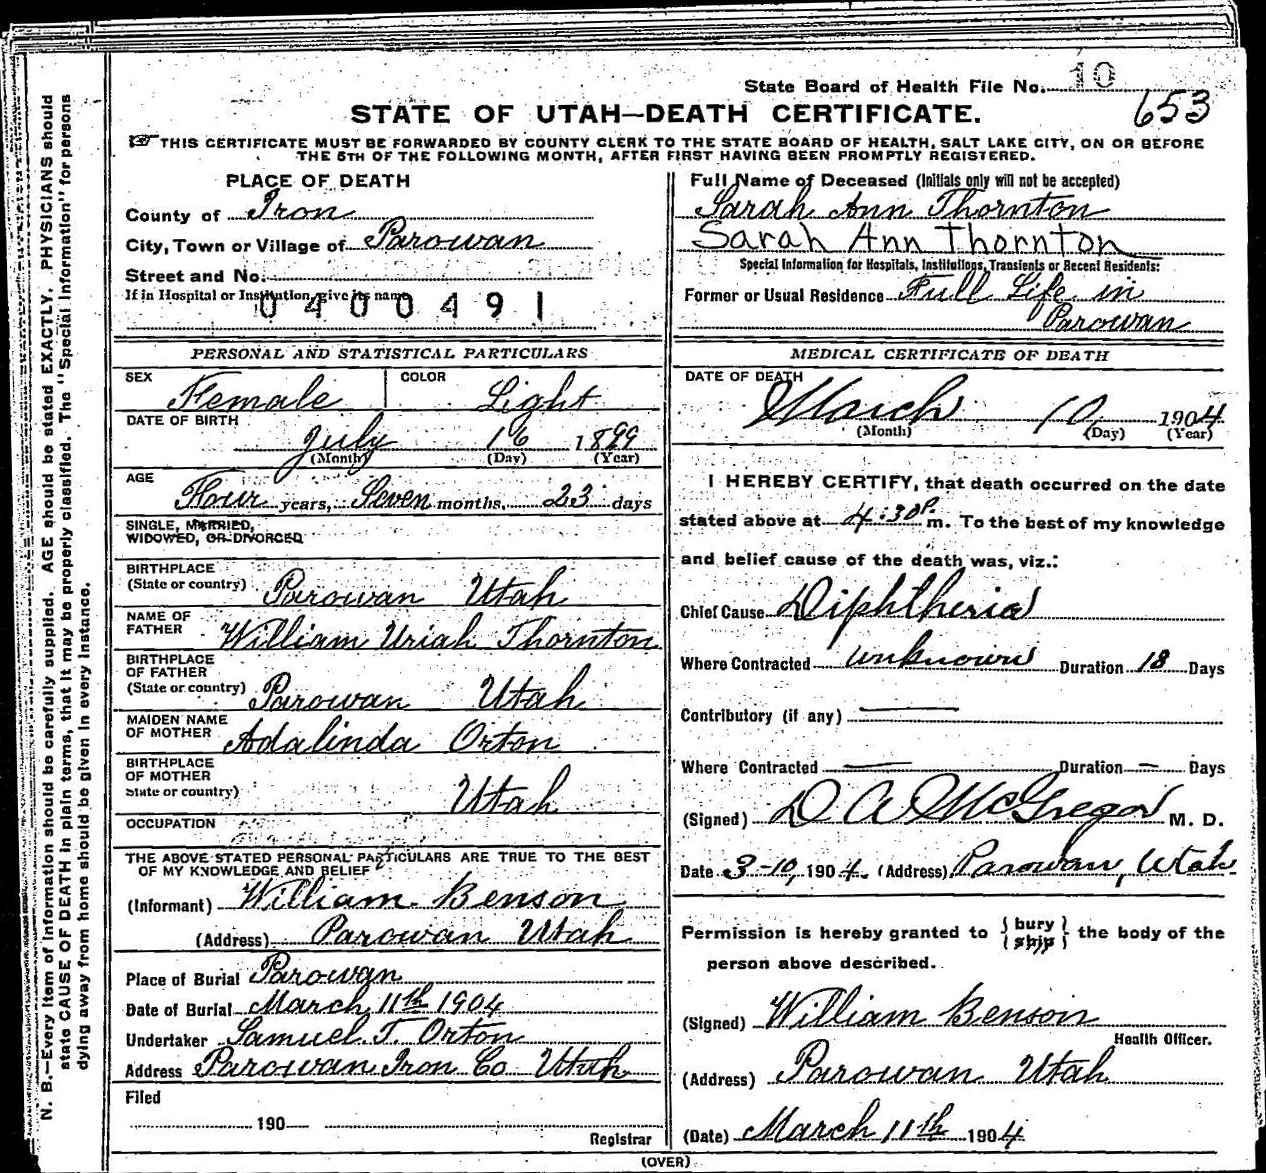 State Board of Health File No. 10
653
STATE OF UTAH—DEATH CERTIFICATE.
☞ THIS CERTIFICATE MUST BE FORWARDED BY COUNTY CLERK TO THE STATE BOARD OF HEALTH, SALT LAKE CITY, ON OR BEFORE
THE 5TH OF THE FOLLOWING MONTH, AFTER FIRST HAVING BEEN PROMPTLY REGISTERED.
PLACE OF DEATH
County of Iron
City, Town or Village of Parowan
Street and No.
If in Hospital or Institution, give its name
0400491
Full Name of Deceased (Initials only will not be accepted)
Sarah Ann Thornton
Sarah Ann Thornton
Special Information for Hospitals, Institutions, Transients or Recent Residents:
Former or Usual Residence Full Life in
Parowan
PERSONAL AND STATISTICAL PARTICULARS
SEX Female COLOR Light
DATE OF BIRTH July 16 1899
(Month) (Day) (Year)
AGE Four years, Seven months, 23 days
SINGLE, MARRIED,
WIDOWED, OR DIVORCED
BIRTHPLACE
(State or country) Parowan Utah
NAME OF
FATHER William Uriah Thornton
BIRTHPLACE
OF FATHER
(State or country) Parowan Utah
MAIDEN NAME
OF MOTHER Adalinda Orton
BIRTHPLACE
OF MOTHER
State or country) Utah
OCCUPATION
THE ABOVE STATED PERSONAL PARTICULARS ARE TRUE TO THE BEST
OF MY KNOWLEDGE AND BELIEF
(Informant) William Benson
(Address) Parowan Utah
Place of Burial Parowan
Date of Burial March 11th 1904
Undertaker Samuel T. Orton
Address Parowan Iron Co Utah
Filed
190
Registrar
MEDICAL CERTIFICATE OF DEATH
DATE OF DEATH
March 10 1904
(Month) (Day) (Year)
I HEREBY CERTIFY, that death occurred on the date
stated above at 4:30 P. m. To the best of my knowledge
and belief cause of the death was, viz.:
Chief Cause Diphtheria
Where Contracted unknown Duration 18 Days
Contributory (if any) —
Where Contracted — Duration — Days
(Signed) D A McGregor M. D.
Date 3-10, 1904. (Address) Parowan, Utah.
Permission is hereby granted to { bury
ship } the body of the
person above described.
(Signed) William Benson
Health Officer.
(Address) Parowan Utah
(Date) March 11th 1904
(OVER)
N. B.—Every item of information should be carefully supplied. AGE should be stated EXACTLY. PHYSICIANS should
state CAUSE OF DEATH in plain terms, that it may be properly classified. The "Special Information" for persons
dying away from home should be given in every instance.